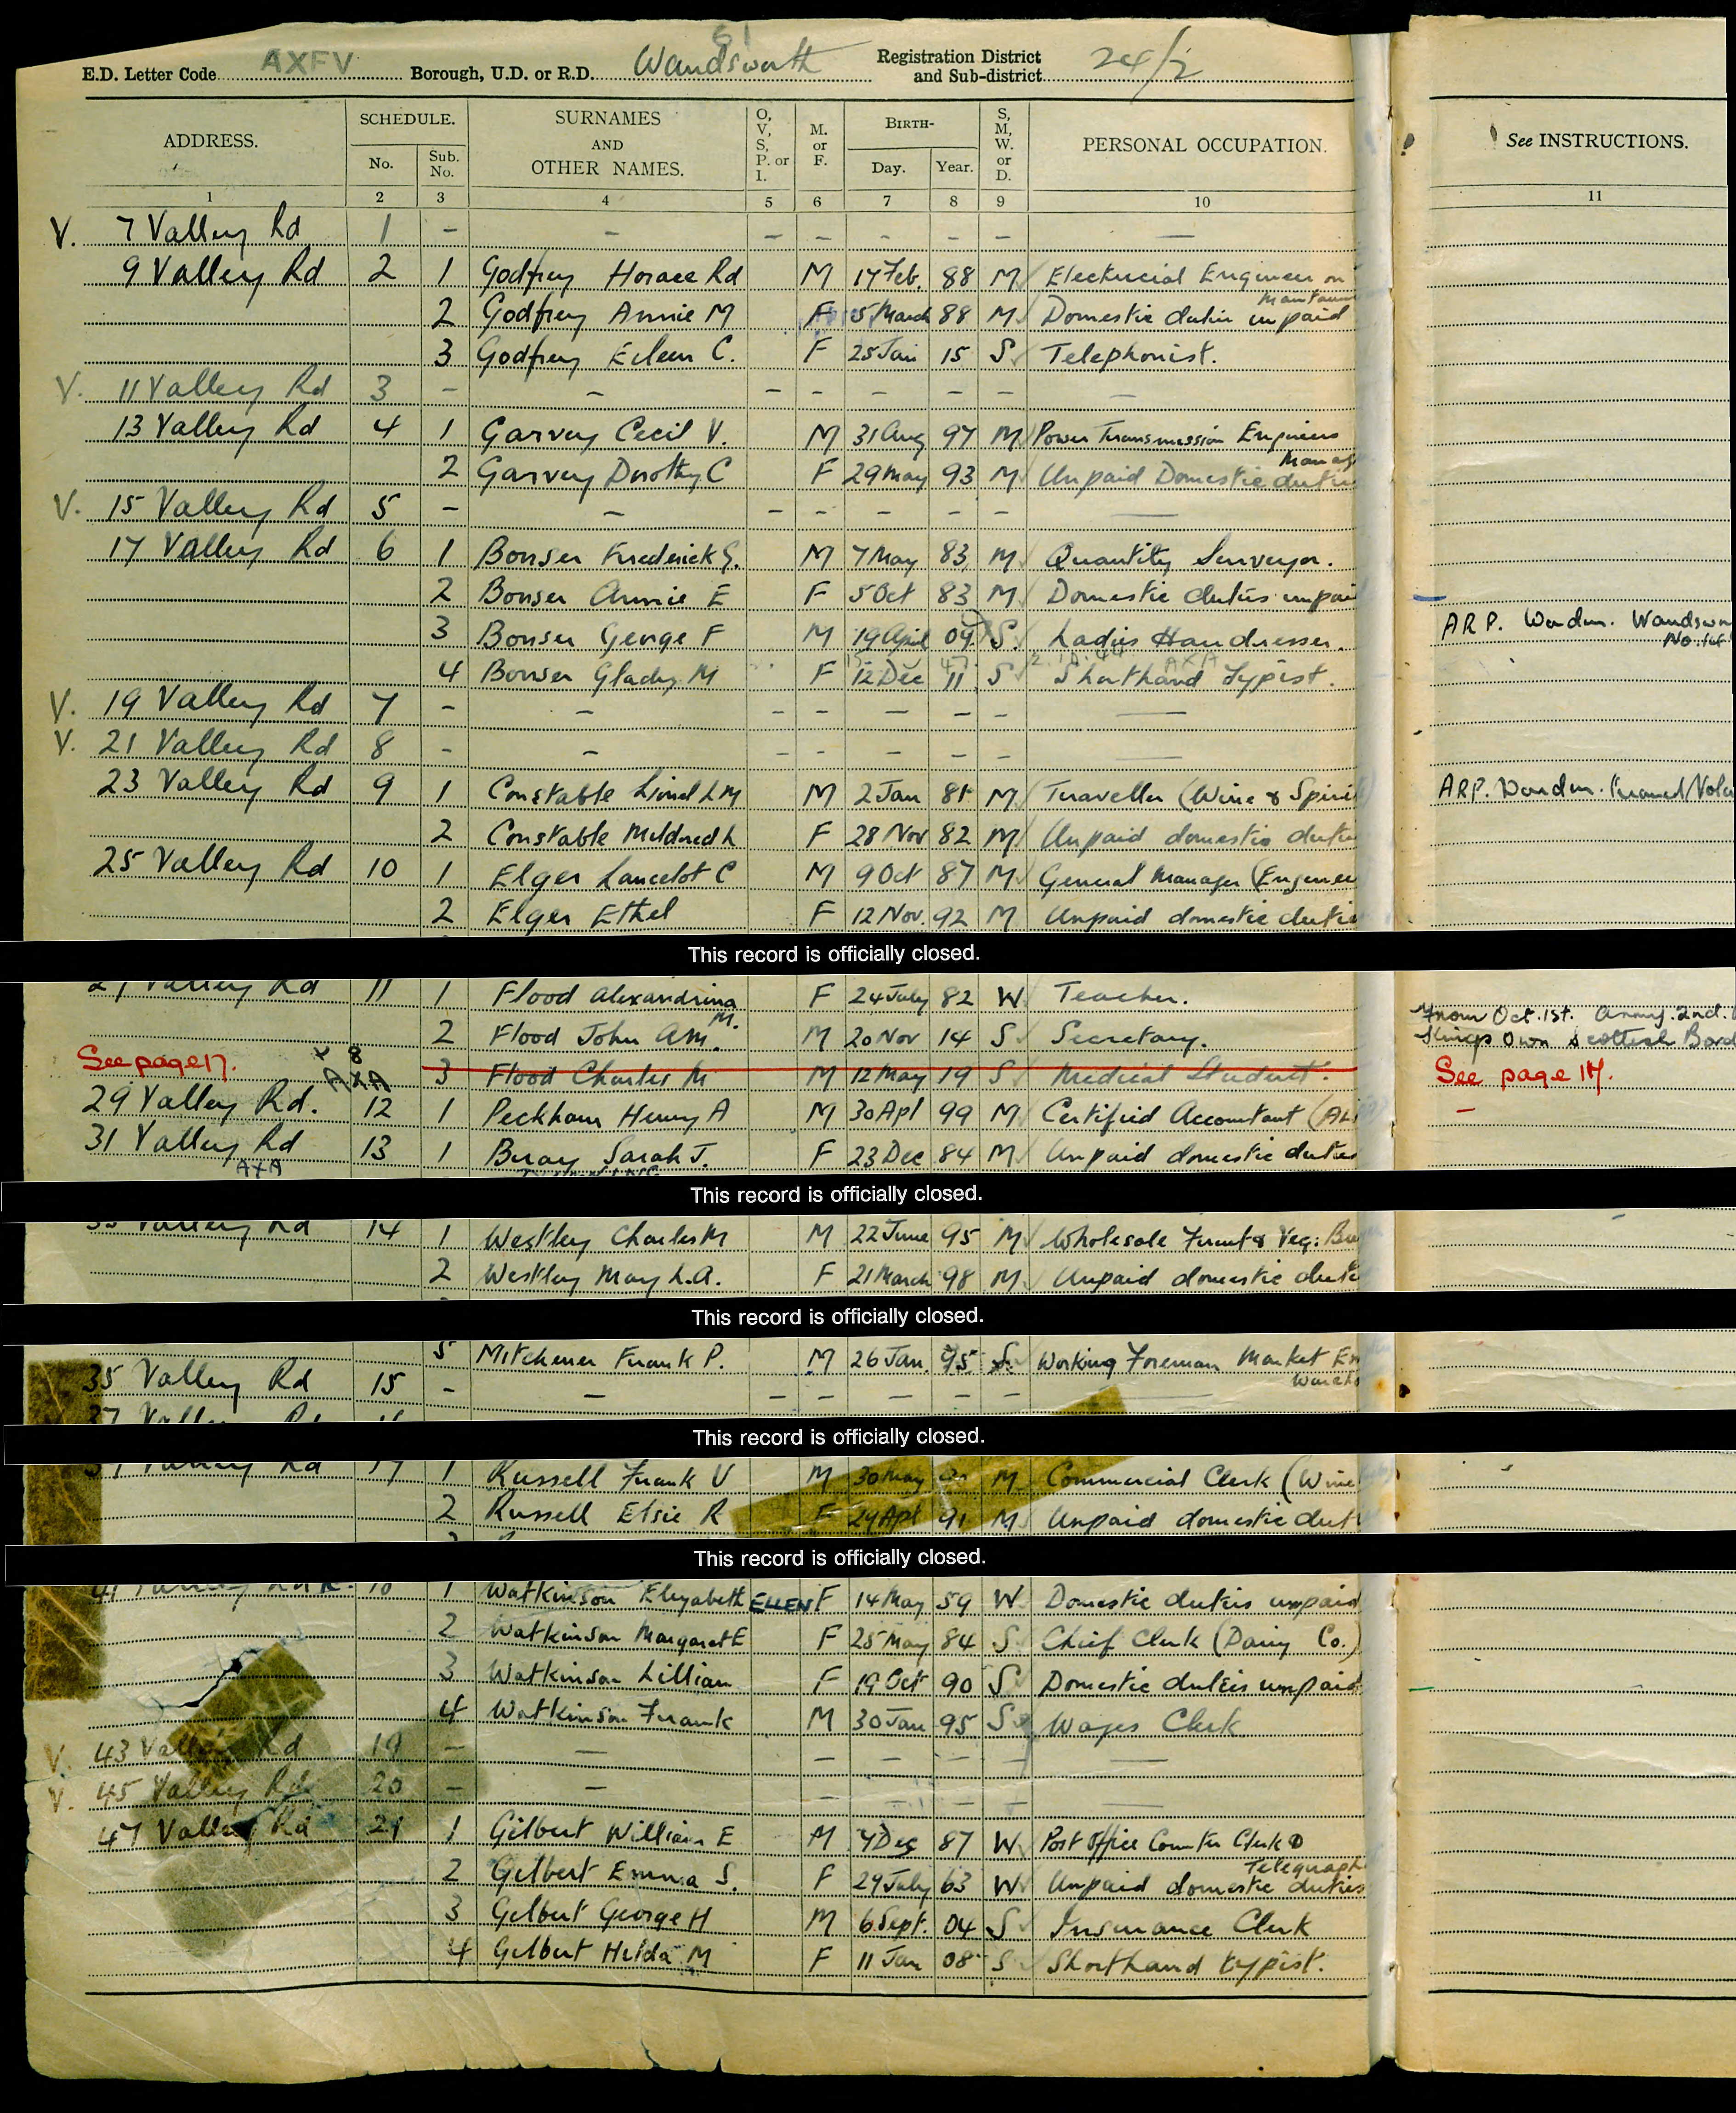 61
E.D. Letter Code AXFV Borough, U.D. or R.D. Wandsworth Registration District and Sub-district 24/2
ADDRESS. SCHEDULE. SURNAMES AND OTHER NAMES. O, V, S, P. or I. M. or F. BIRTH- S, M, W. or D. PERSONAL OCCUPATION. See INSTRUCTIONS.
No. Sub. No. Day. Year.
1 2 3 4 5 6 7 8 9 10 11
V. 7 Valley Rd 1 - - - - - - - -
9 Valley Rd 2 1 Godfrey Horace Rd M 17 Feb. 88 M Electricial Engineer on
2 Godfrey Annie M F 5 March 88 M Domestic duties unpaid
3 Godfrey Eileen C. F 25 Jan 15 S Telephonist.
V. 11 Valley Rd 3 - - - - - - - -
13 Valley Rd 4 1 Garvey Cecil V. M 31 Aug 97 M Power Transmission Engineers
Manag
2 Garvey Dorothy C F 29 May 93 M Unpaid Domestic dutie
V. 15 Valley Rd 5 - - - - - - - -
17 Valley Rd 6 1 Bonser Frederick G. M 7 May 83 M Quantity Surveyor.
2 Bonser Annie E F 5 Oct 83 M Domestic duties unpai
3 Bonser George F M 19 April 09 S. Ladies Hairdresser. A.R.P. Warden. Wandswo
4 Bonser Gladys M F 12 Dec 11 S Shorthand Typist.
V. 19 Valley Rd 7 - - - - - - - -
V. 21 Valley Rd 8 - - - - - - - -
23 Valley Rd 9 1 Constable Lionel L M M 2 Jan 81 M Traveller (Wine & Spirit A.R.P. Warden.
2 Constable Mildred L F 28 Nov 82 M Unpaid domestic dutie
25 Valley Rd 10 1 Elger Lancelot C M 9 Oct 87 M General Manager (Enginee
2 Elger Ethel F 12 Nov. 92 M Unpaid domestic dutie
This record is officially closed.
27 Valley Rd 11 1 Flood Alexandrina M. F 24 July 82 W Teacher.
2 Flood John A M. M 20 Nov 14 S Secretary. From Oct. 1st. Army. 2nd.
Kings Own Scottish Bord
See page 17. 3 Flood Charles M M 12 May 19 S Medical Student. See page 17.
AXA
29 Valley Rd. 12 1 Peckham Henry A M 30 Apl 99 M Certified Accountant
31 Valley Rd 13 1 Bray Sarah J. F 23 Dec 84 M Unpaid domestic duties
AXA
This record is officially closed.
33 Valley Rd 14 1 Westley Charles M M 22 June 95 M Wholesale Fruit & Veg:
2 Westley May L.A. F 21 March 98 M Unpaid domestic dutie
This record is officially closed.
5 Mitchener Frank P. M 26 Jan. 95 S Working Foreman Market
35 Valley Rd 15 - - - - - - - -
37 Valley Rd 16
This record is officially closed.
39 Valley Rd 17 1 Russell Frank V M 30 May M Commercial Clerk (Wine
2 Russell Elsie R F 24 Apl 91 M Unpaid domestic dut
This record is officially closed.
41 Valley Rd 18 1 Watkinson Elizabeth ELLEN F 14 May 59 W Domestic duties unpaid
2 Watkinson Margaret E F 25 May 84 S Chief Clerk (Dairy Co.)
3 Watkinson Lillian F 19 Oct 90 S Domestic duties unpaid
4 Watkinson Frank M 30 Jan 95 S Wages Clerk
V. 43 Valley Rd 19 - - - - - - - -
V. 45 Valley Rd 20 - - - - - - - -
47 Valley Rd 21 1 Gilbert William E M 7 Dec 87 W Post Office Counter Clerk &
Telegraph
2 Gilbert Emma S. F 29 July 63 W Unpaid domestic duties
3 Gilbert George H M 6 Sept. 04 S Insurance Clerk
4 Gilbert Hilda M F 11 Jan 08 S Shorthand typist.